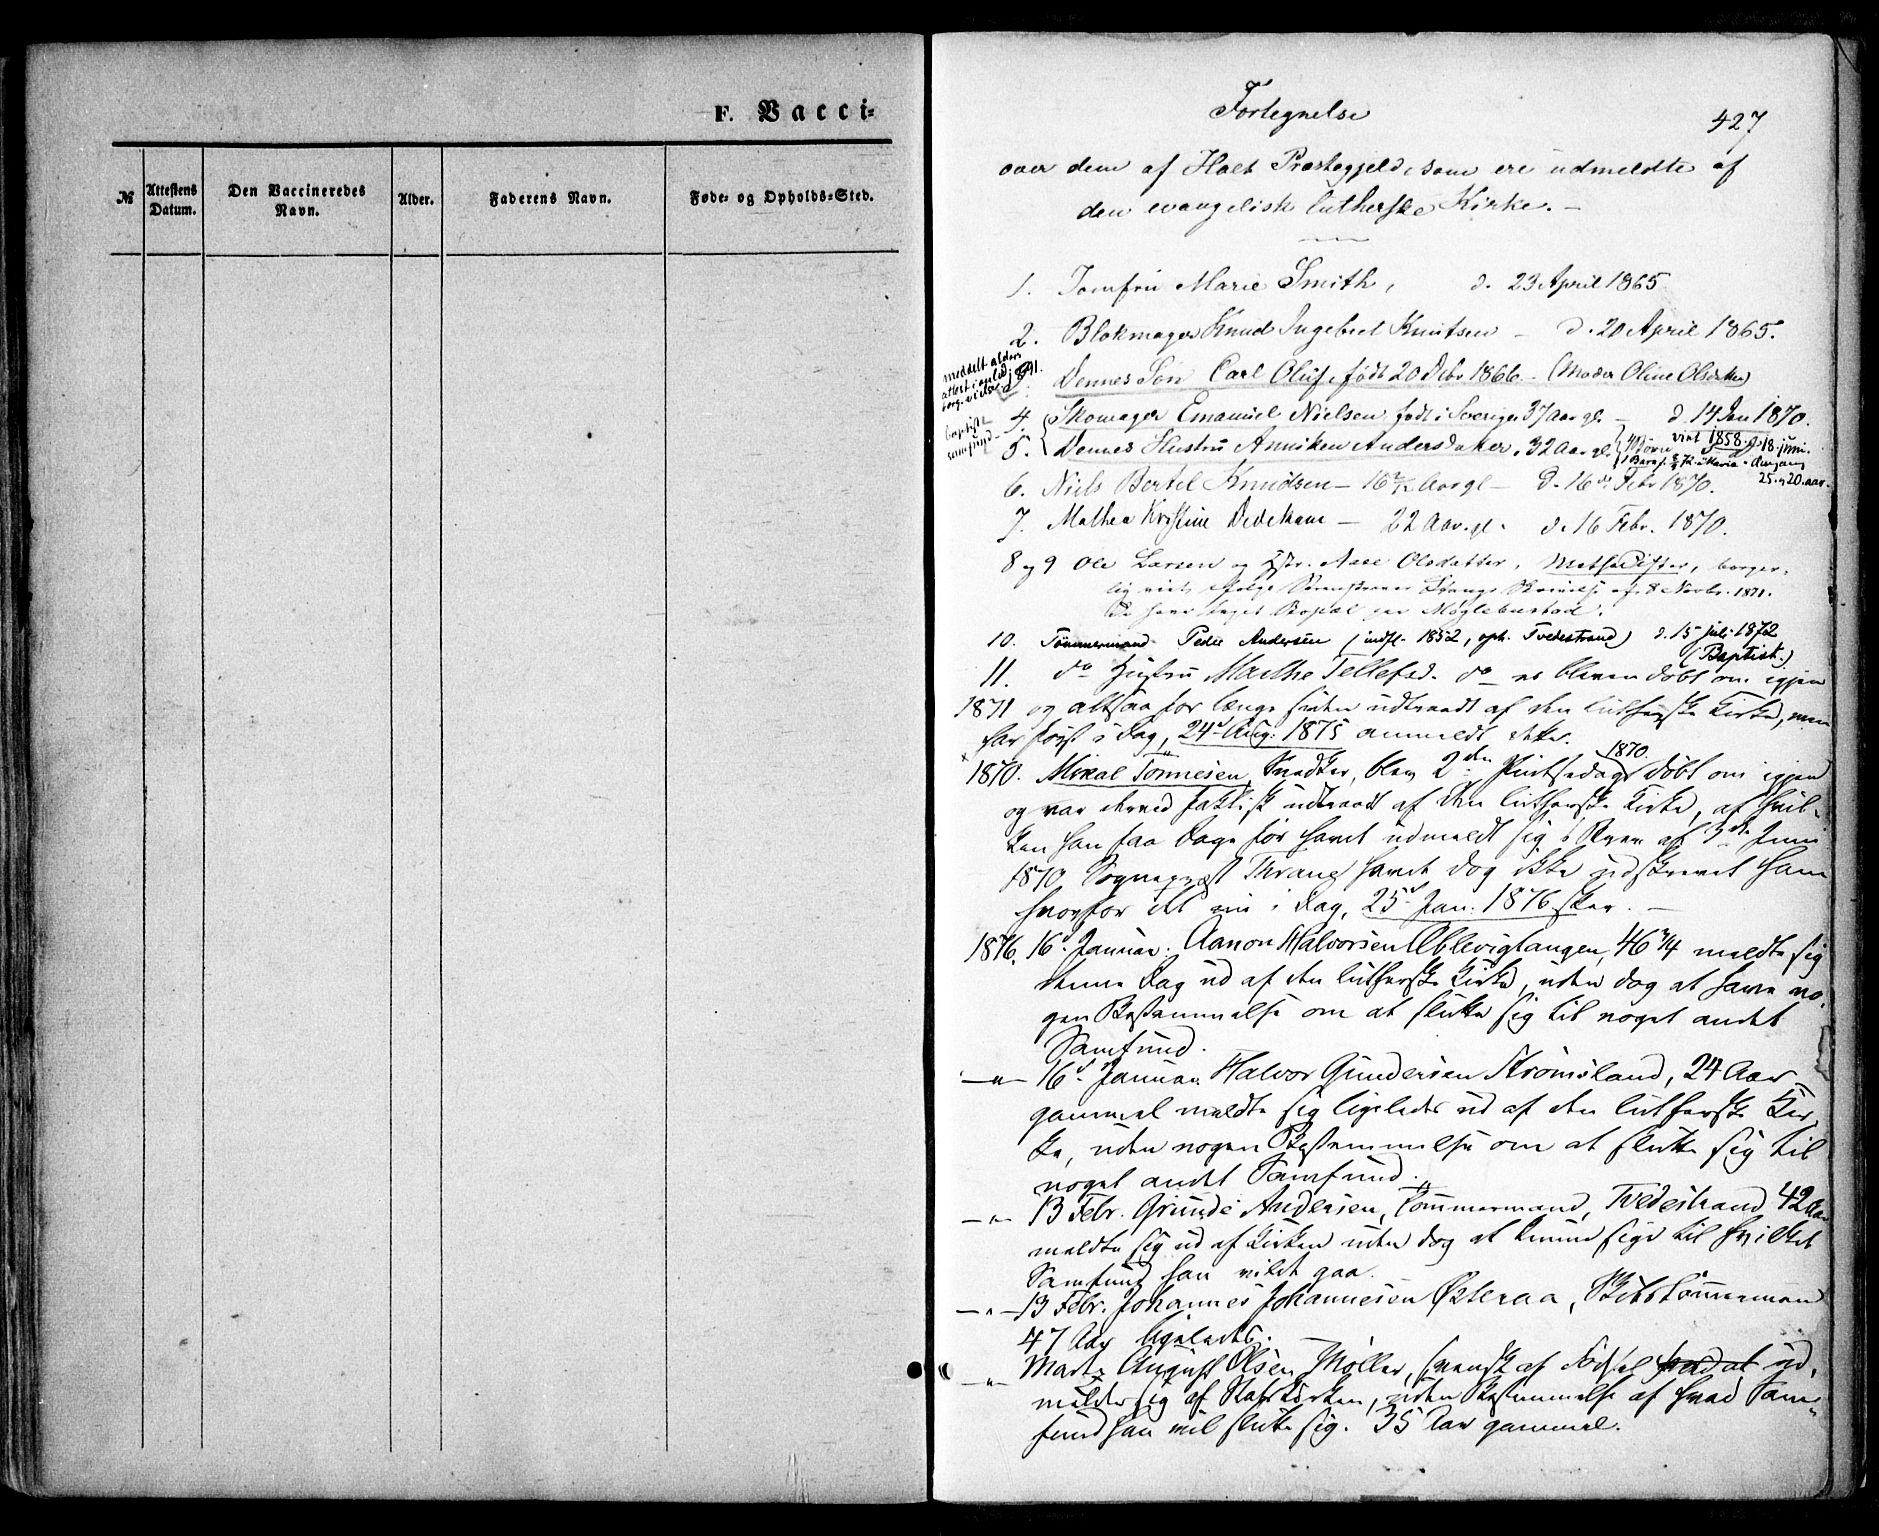 F. Vacci-
№
Attestens Datum.
Den Vaccineredes Navn.
Alder.
Faderens Navn.
Føde- og Opholds-Sted.
427
Fortegnelse
over dem af Holt Præstegjeld, som ere udmeldte af
den evangelisk lutherske Kirke. –
1. Jomfru Marie Smith, d. 23 April 1865
2. Blokmager Knud Ingebret Knutsen – d. 20 April 1865.
meddelt alders
attest i anled.
borg. vielse 1891.
Dennes Søn Carl Oluf, født 20 Debr 1866 – (Moder Oline Olsdtter)
4. Skomager Emanuel Nielsen født i Sverige 37 Aar gl. – d 14 Jan 1870.
baptist
samfund
5. Dennes Hustru Anniken Andersdatter, 32 Aar gl. viet 1858 d. 18. juni.
25 og 20. aar
6. Niels Bertel Knudsen – 16 Aar gl – d. 16de Febr 1870.
7. Mathea Kristine Dedekam – 22 Aar. gl. d. 16 Febr. 1870.
8 og 9 Ole Larsen og Aase Olsdatter, Methodister, borger-
lig viede ifølge Skrivelse af 8 Novbr. 1871.
De have taget Bopæl paa Møglebustad.
10. Tømmermand Peder Andersen (indfl. 1852, oph. Tvedestrand) d. 15 juli 1872
(Baptist.)
11. do Hustru Marthe Tellefsd. do – es bleven døbt om igjen
1871 og altsaa for længe siden udtraadt af den lutherske Kirke, men
har først i Dag, 24d Aug. 1875 anmeldt dette.
1870. Mikal Tønnesen, Snedker, blev 2den Pintsedag 1870 døbt om igjen
og var derved faktisk udtraadt af den lutherske Kirke, af hvil-
ken han faa Dage før havet udmeldt sig i Breve af 3de Juni
1870 Sogneprest Thrane havet dog ikke udskrevet ham
hvorfor det nu i Dag, 25d Jan. 1876 sker. –
1876. 16d Januar. Aanon Halvorsen Ablevigtangen, 46 3/4 meldte sig
denne Dag ud af den lutherske Kirke, uden dog at have no-
gen Bestemmelse om at slutte sig til noget andet
Samfund.
–"– 16d Januar. Halvor Gundersen Strømsland, 24 Aar
gammel meldte sig ligeledes ud af den lutherske Kir-
ke, uden nogen Bestemmelse om at slutte sig til
noget andet Samfund.
–"– 13 Febr. Grunde Andersen, Tømmermand, Tvedestrand 42 Aar
meldte sig ud af Kirken uden dog at kunne sige til hvilket
Samfund han vilde gaa.
–"– 13 Febr. Johannes Johannesen Østeraa, Skibstømmermand
47 Aar ligeledes.
–"– Martz August Olsen Møller, svensk af Fødsel ud-
melder sig af Statskirken, uden Bestemmelse af hvad Sam-
fund han vil slutte sig. 35 Aar gammel.